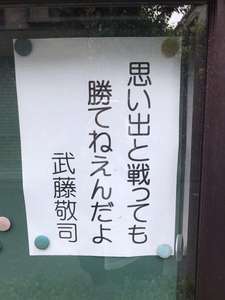 思い出と戦っても
勝てねえんだよ
武藤敬司